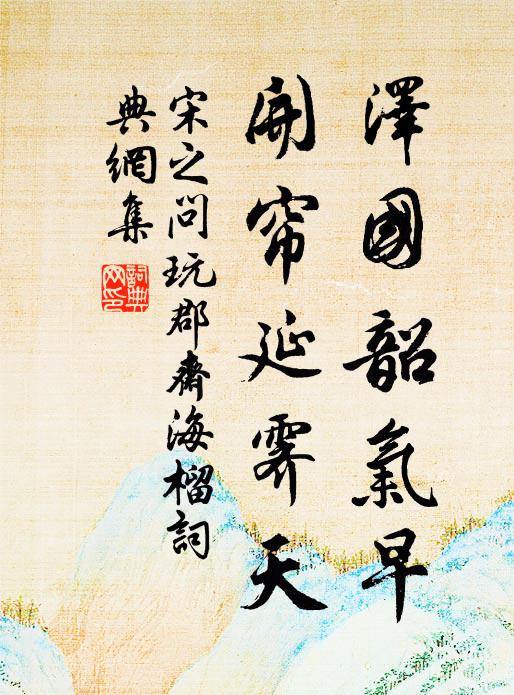 澤國韶氣早
開帘延霽天
宋之问玩郡齋海榴詞
典網集
詞典網印